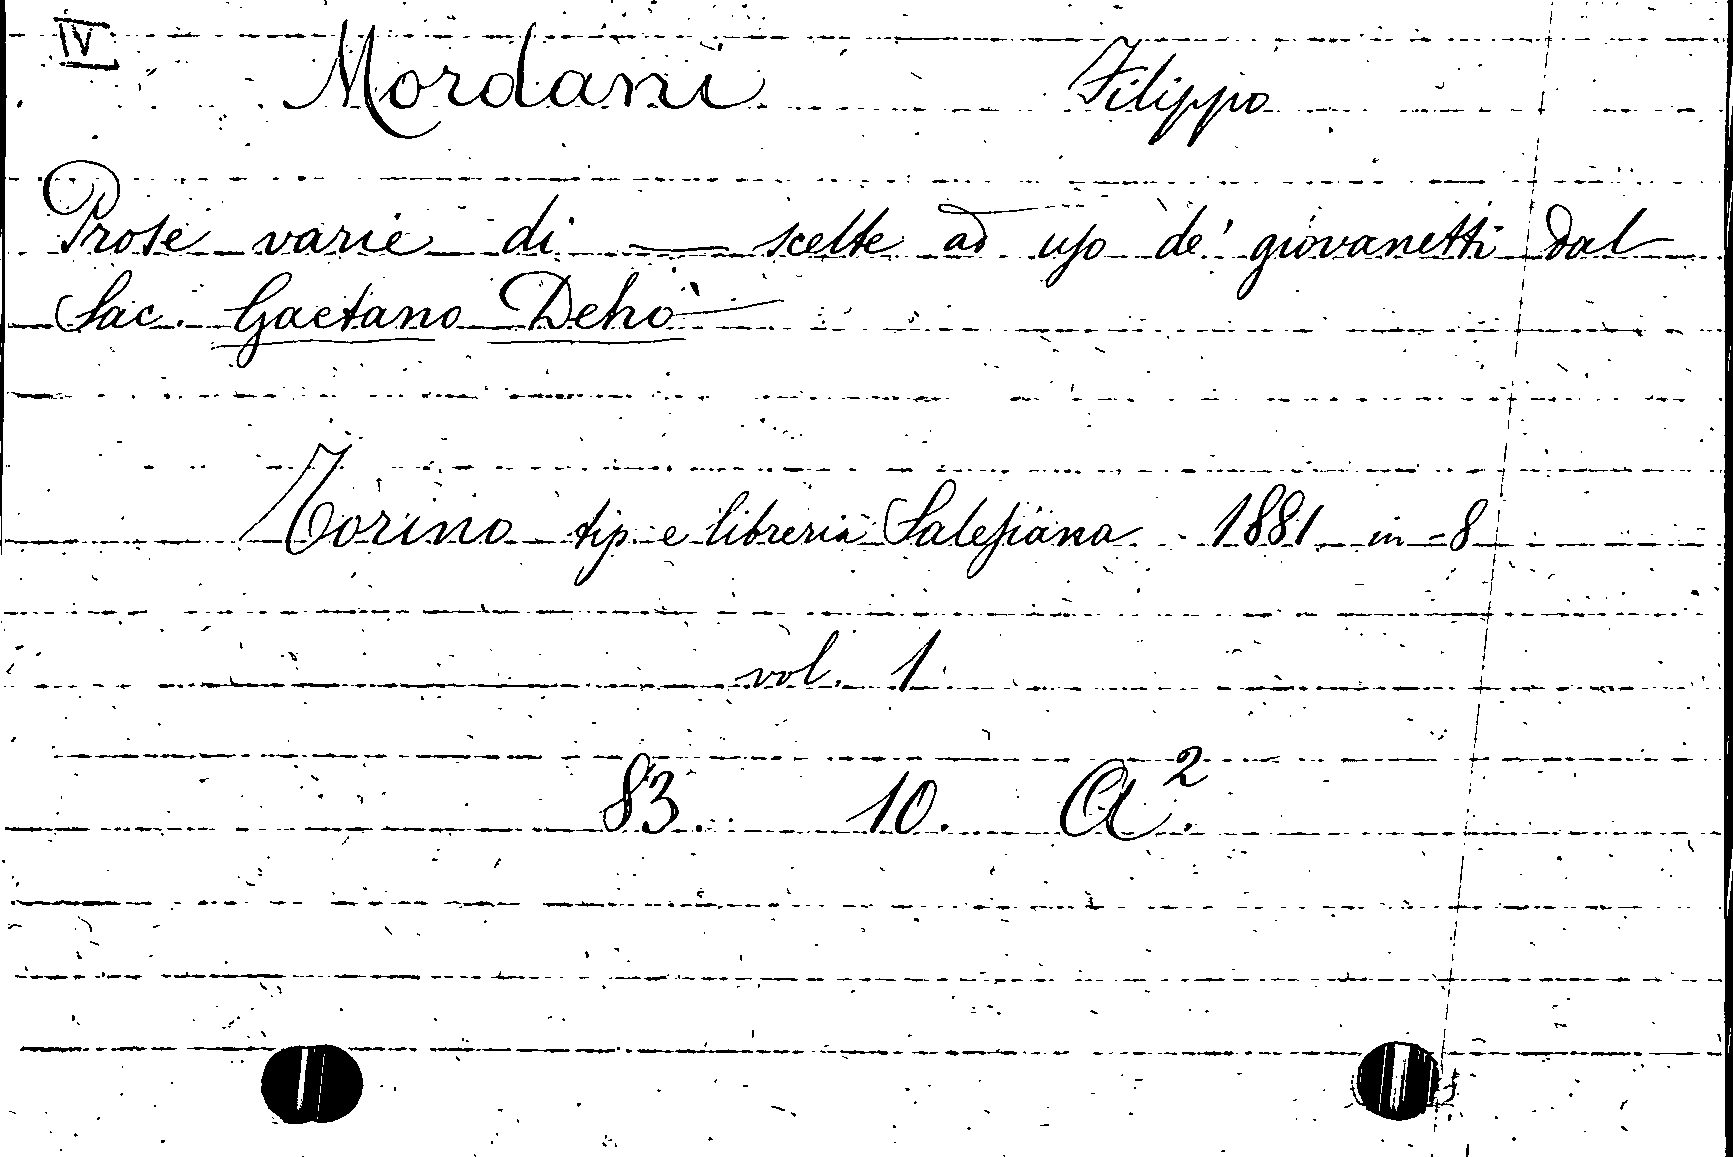 IV
Mordani Filippo
Prose varie di —— scelte ad uso de' giovanetti dal
Sac. Gaetano Dehò
Torino tip e libreria Salesiana 1881 in-8
vol. 1
83. 10. A².